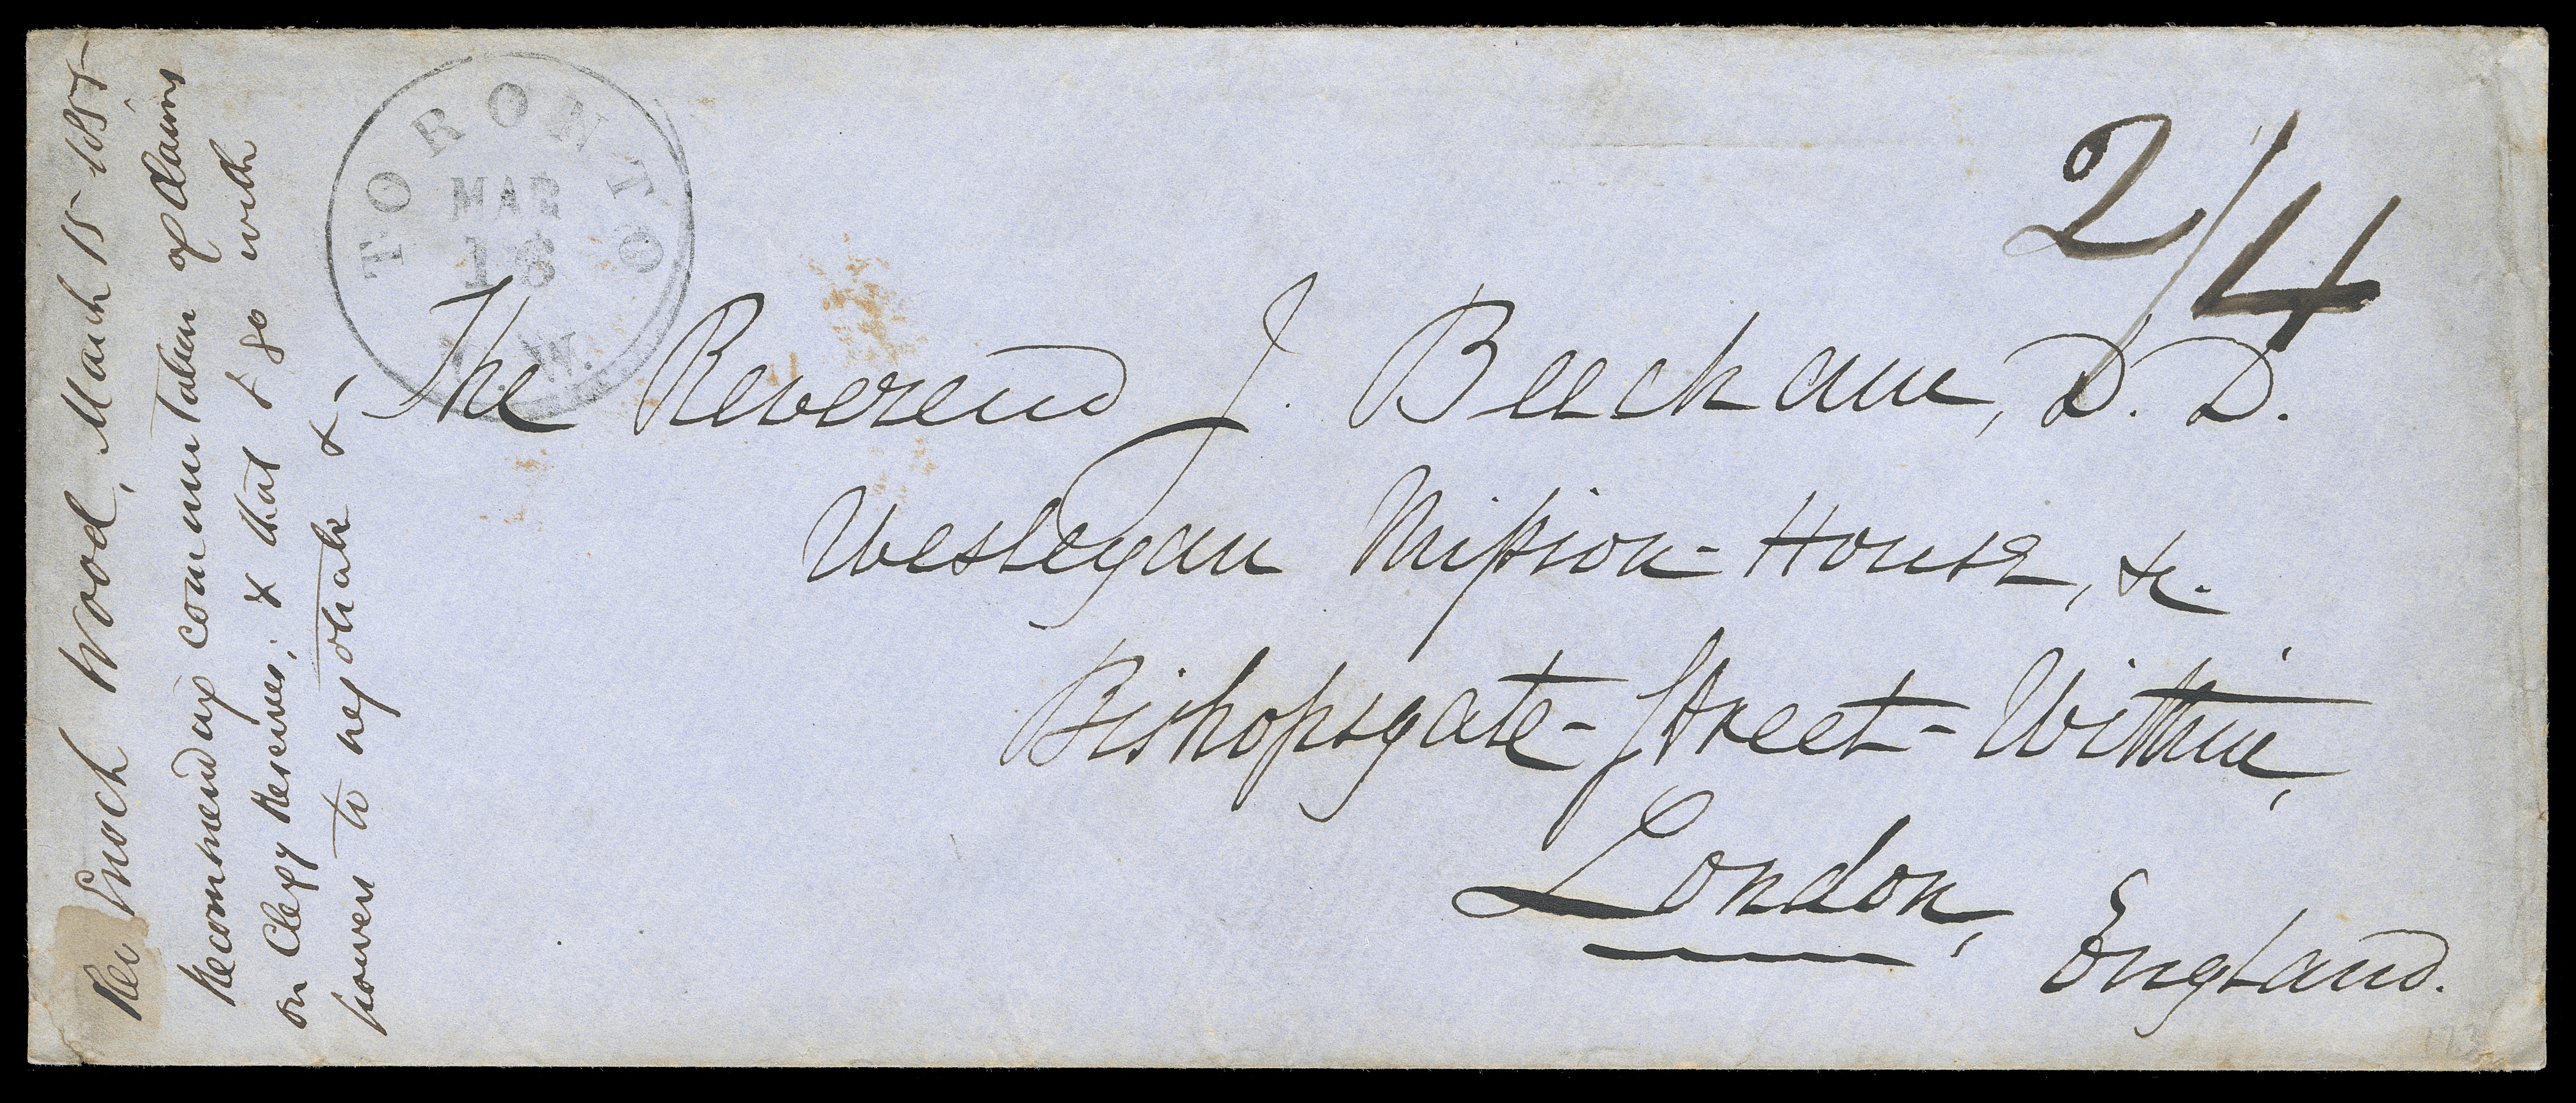 Rev Enoch Wood, March 15 1855
Recommending commutation of claims
on Clergy Reserves; & that I go with
powers to negotiate &-
TORONTO
MAR
16
W.
2/4
The Reverend J. Beecham, D. D.
Wesleyan Mission-House, &c.
Bishopsgate-Street-Within,
London,
England.